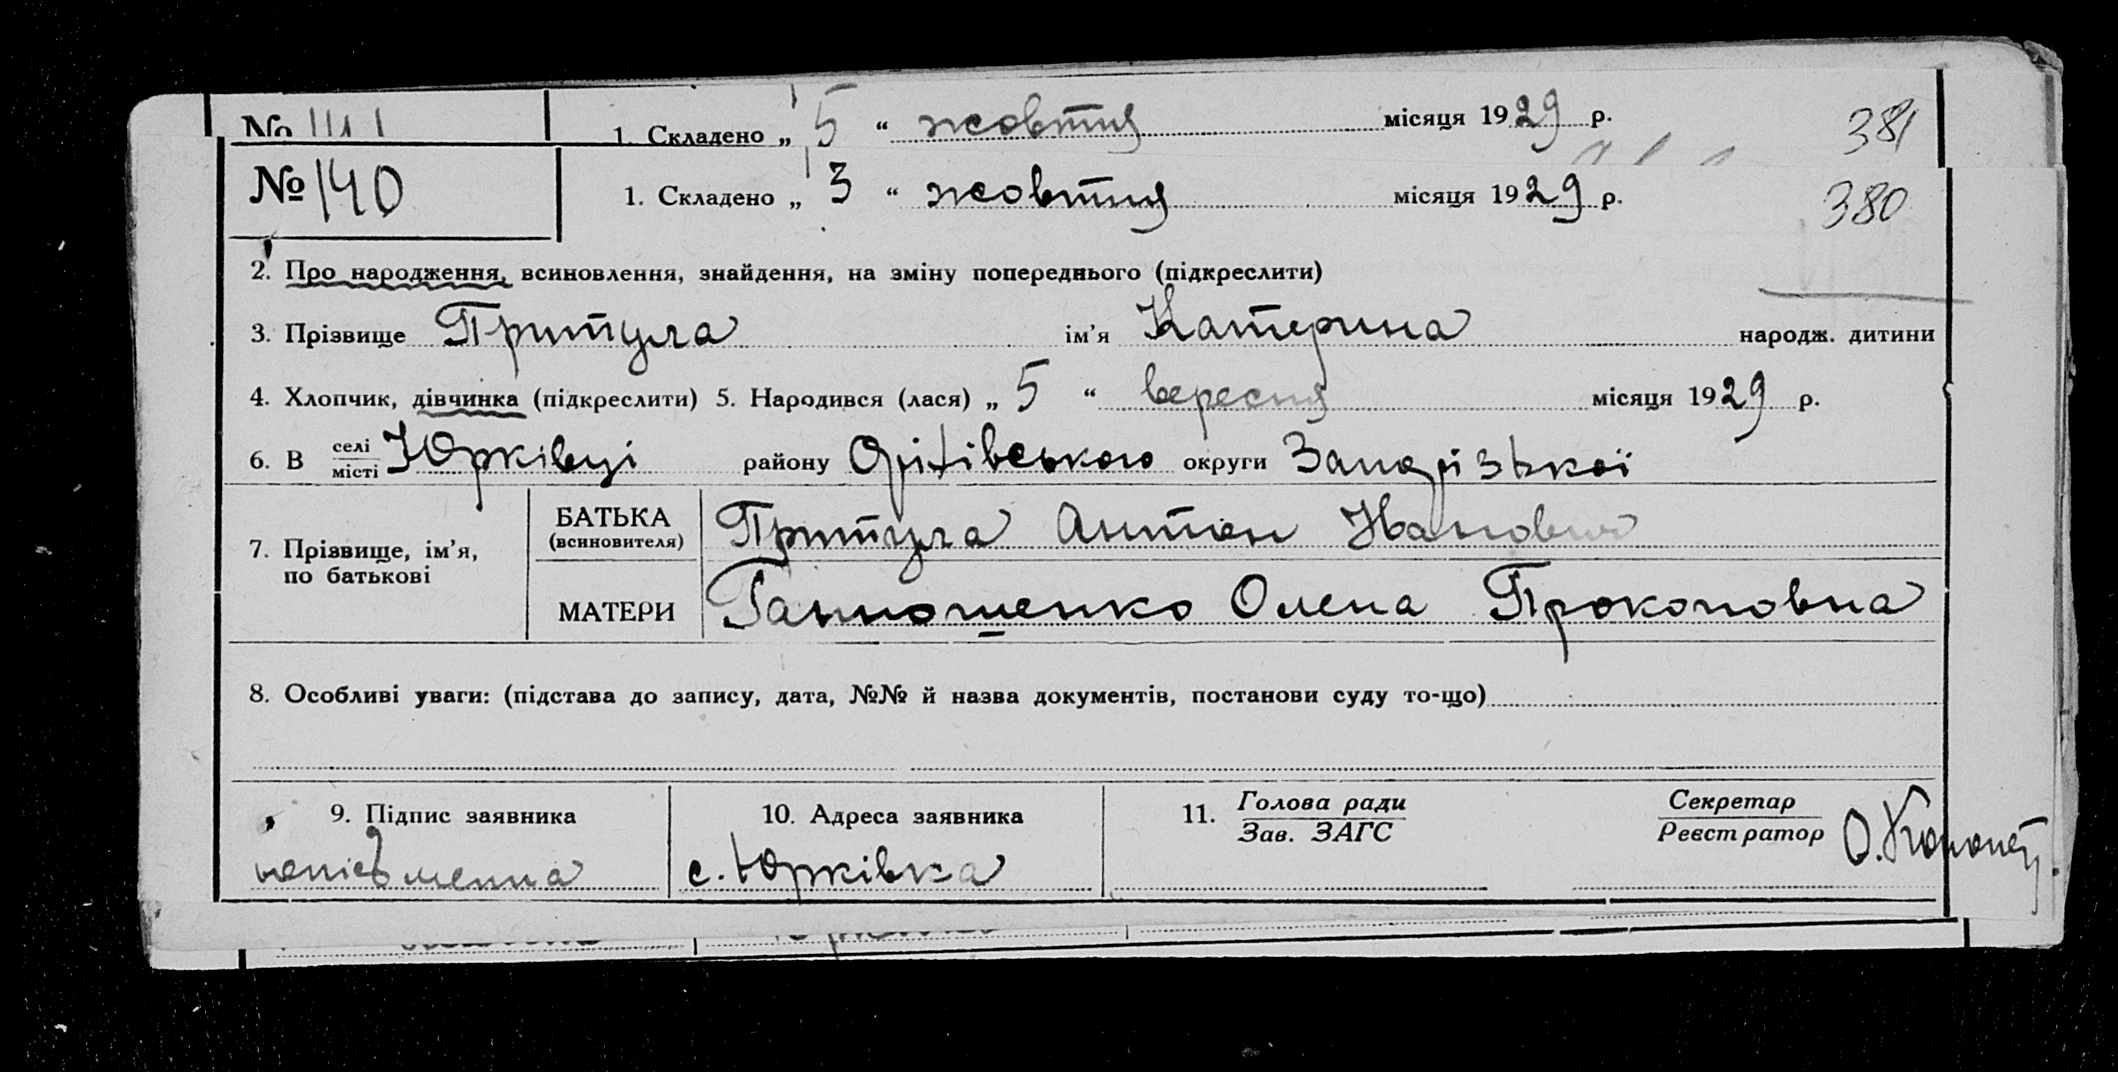 № 141 1. Складено „ 5 “ жовтня місяця 1929 р. 381
№ 140 1. Складено „ 3 “ жовтня місяця 1929 р. 380
2. Про народження, всиновлення, знайдення, на зміну попереднього (підкреслити)
3. Прізвище Притула ім’я Катерина народж. дитини
4. Хлопчик, дівчинка (підкреслити) 5. Народився (лася) „ 5 “ вересня місяця 1929 р.
6. В селі/місті Юрківці району Оріхівського округи Запорізької
7. Прізвище, ім’я, по батькові
БАТЬКА (всиновителя) Притула Антон Иванович
МАТЕРИ Ганношенко Олена Прокоповна
8. Особливі уваги: (підстава до запису, дата, №№ й назва документів, постанови суду то-що)
9. Підпис заявника 10. Адреса заявника 11. Голова ради/Зав. ЗАГС Секретар/Реєстратор
неписьменна с. Юрківка